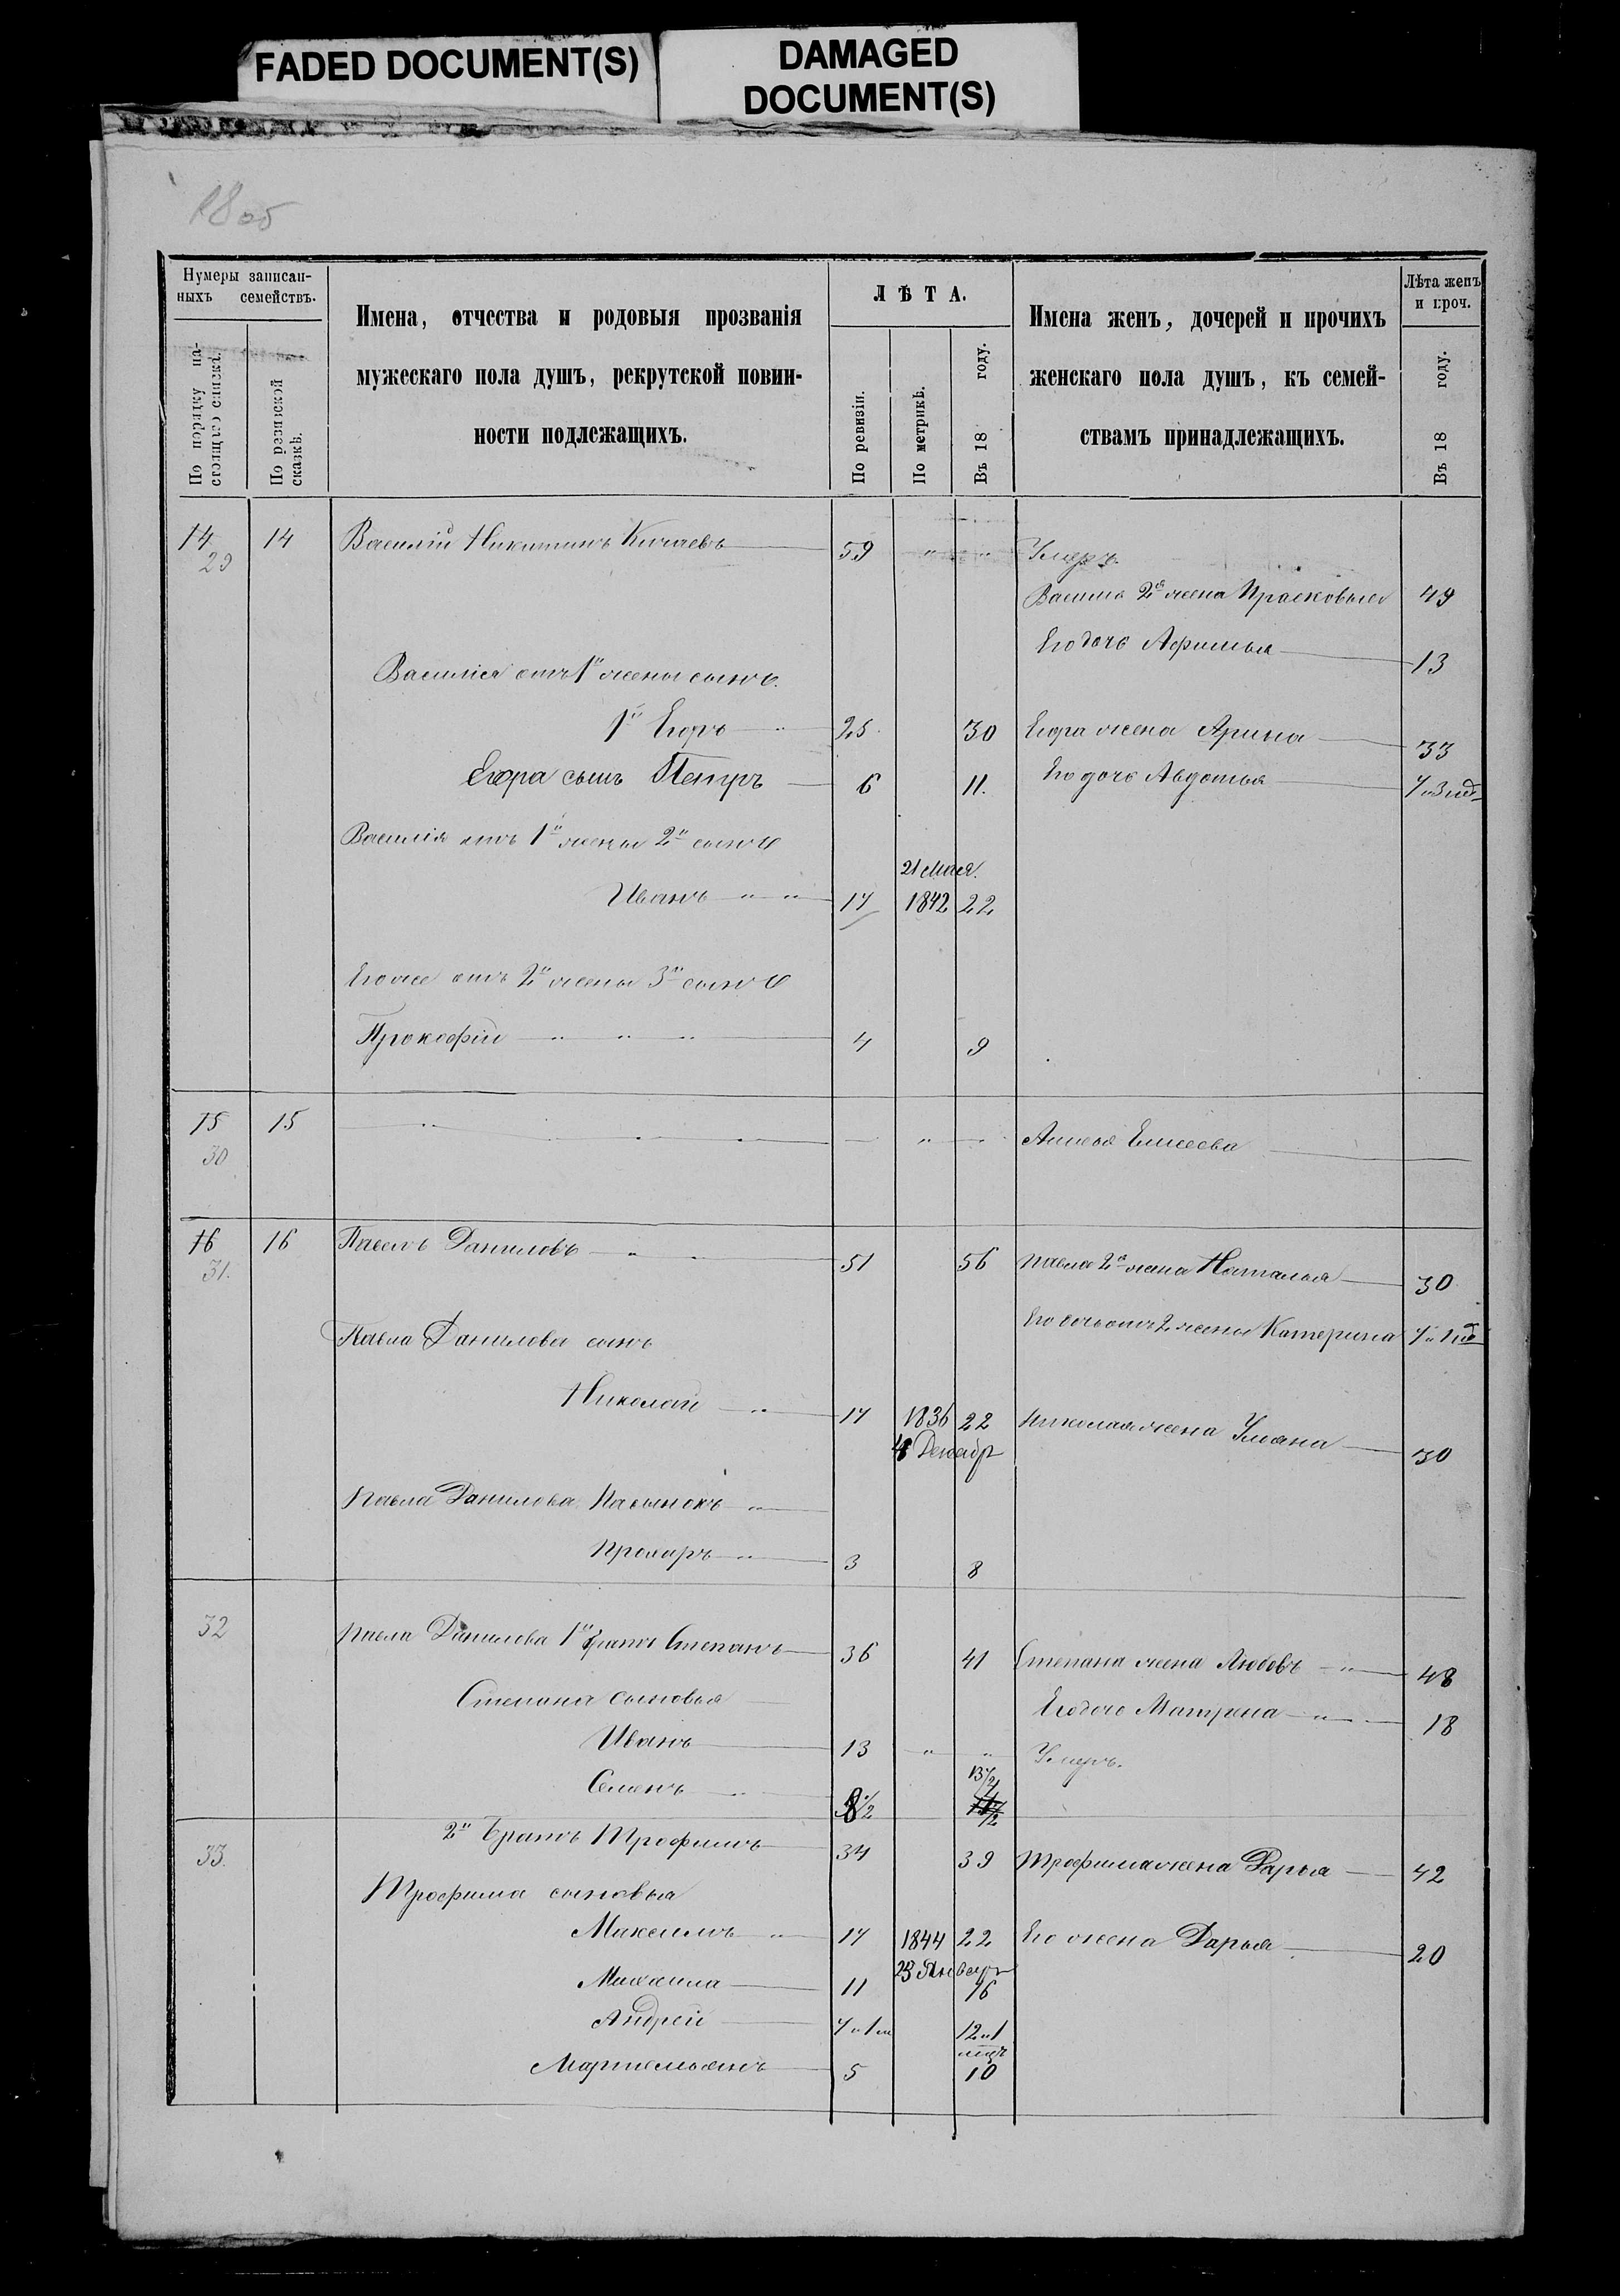 FADED DOCUMENT(S)
DAMAGED
DOCUMENT(S)
Нумеры записан-
ныхъ семействъ.
По порядку на-
стоящаго списка.
По ревизской
сказкѣ.
Имена, отчества и родовыя прозванія
мужескаго пола душъ, рекрутской повин-
ности подлежащихъ.
ЛѢТА.
По ревизіи.
По метрикѣ.
Въ 18 году.
Имена женъ, дочерей и прочихъ
женскаго пола душъ, къ семей-
ствамъ принадлежащихъ.
Лѣта женъ
и проч.
Въ 18 году.
14 14 Василій Никитинъ 59 " " Умеръ.
29
Василія 2я жена Прасковья 49
Его дочь Афимья 13
Василія отъ 1й жены сынъ.
1й Егоръ 25 30 Егора жена Арина 33
Егора сынъ Петръ 6 11. Его дочь Авдотья
Василія отъ 1й жены 2й сынъ
21 Мая.
Иванъ " " 17 1842 22
Его же отъ 2й жены 3й сынъ
Прокофій " " " 4 9
15 15 " " " Елисеева
30
16 16 Павелъ Даниловъ " 51 56 Павла 2я жена Наталья 30
31.
Его дочь отъ 2 жены Катерина
Павла Данилова сынъ
Николай " 17 1836 22 Николая жена Ульяна 30
Декабр
Павла Данилова Пасынокъ "
Прохоръ " 3 8
32 Павла Данилова 1й братъ Степанъ 36 41 Степана жена Любовь " 48
Степана сыновья Его дочь Матрена " 18
Иванъ 13 " " Умеръ.
Семенъ 8½ 13½
33. 2й Братъ Трофимъ 34 39 Трофима жена Дарья 42
Трофима сыновья
Максимъ " 17 1844 22 Его жена Дарья 20
23 Январь
Михаила 11 16
Андрей 7 и 1 м 12 и 1
мѣц
Мартемьянъ 5 10